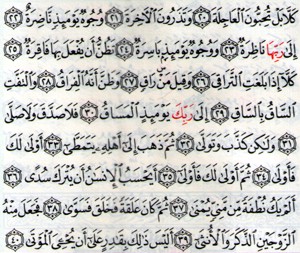 كَلَّا بَلْ تُحِبُّونَ الْعَاجِلَةَ ٢٠ وَتَذَرُونَ الْآخِرَةَ ٢١ وُجُوهٌ يَوْمَئِذٍ نَاضِرَةٌ ٢٢
إِلَى رَبِّهَا نَاظِرَةٌ ٢٣ وَوُجُوهٌ يَوْمَئِذٍ بَاسِرَةٌ ٢٤ تَظُنُّ أَنْ يُفْعَلَ بِهَا فَاقِرَةٌ ٢٥
كَلَّا إِذَا بَلَغَتِ التَّرَاقِيَ ٢٦ وَقِيلَ مَنْ رَاقٍ ٢٧ وَظَنَّ أَنَّهُ الْفِرَاقُ ٢٨ وَالْتَفَّتِ
السَّاقُ بِالسَّاقِ ٢٩ إِلَى رَبِّكَ يَوْمَئِذٍ الْمَسَاقُ ٣٠ فَلَا صَدَّقَ وَلَا صَلَّى
٣١ وَلَكِنْ كَذَّبَ وَتَوَلَّى ٣٢ ثُمَّ ذَهَبَ إِلَى أَهْلِهِ يَتَمَطَّى ٣٣ أَوْلَى لَكَ
فَأَوْلَى ٣٤ ثُمَّ أَوْلَى لَكَ فَأَوْلَى ٣٥ أَيَحْسَبُ الْإِنْسَانُ أَنْ يُتْرَكَ سُدًى ٣٦
أَلَمْ يَكُ نُطْفَةً مِنْ مَنِيٍّ يُمْنَى ٣٧ ثُمَّ كَانَ عَلَقَةً فَخَلَقَ فَسَوَّى ٣٨ فَجَعَلَ مِنْهُ
الزَّوْجَيْنِ الذَّكَرَ وَالْأُنْثَى ٣٩ أَلَيْسَ ذَلِكَ بِقَادِرٍ عَلَى أَنْ يُحْيِيَ الْمَوْتَى ٤٠